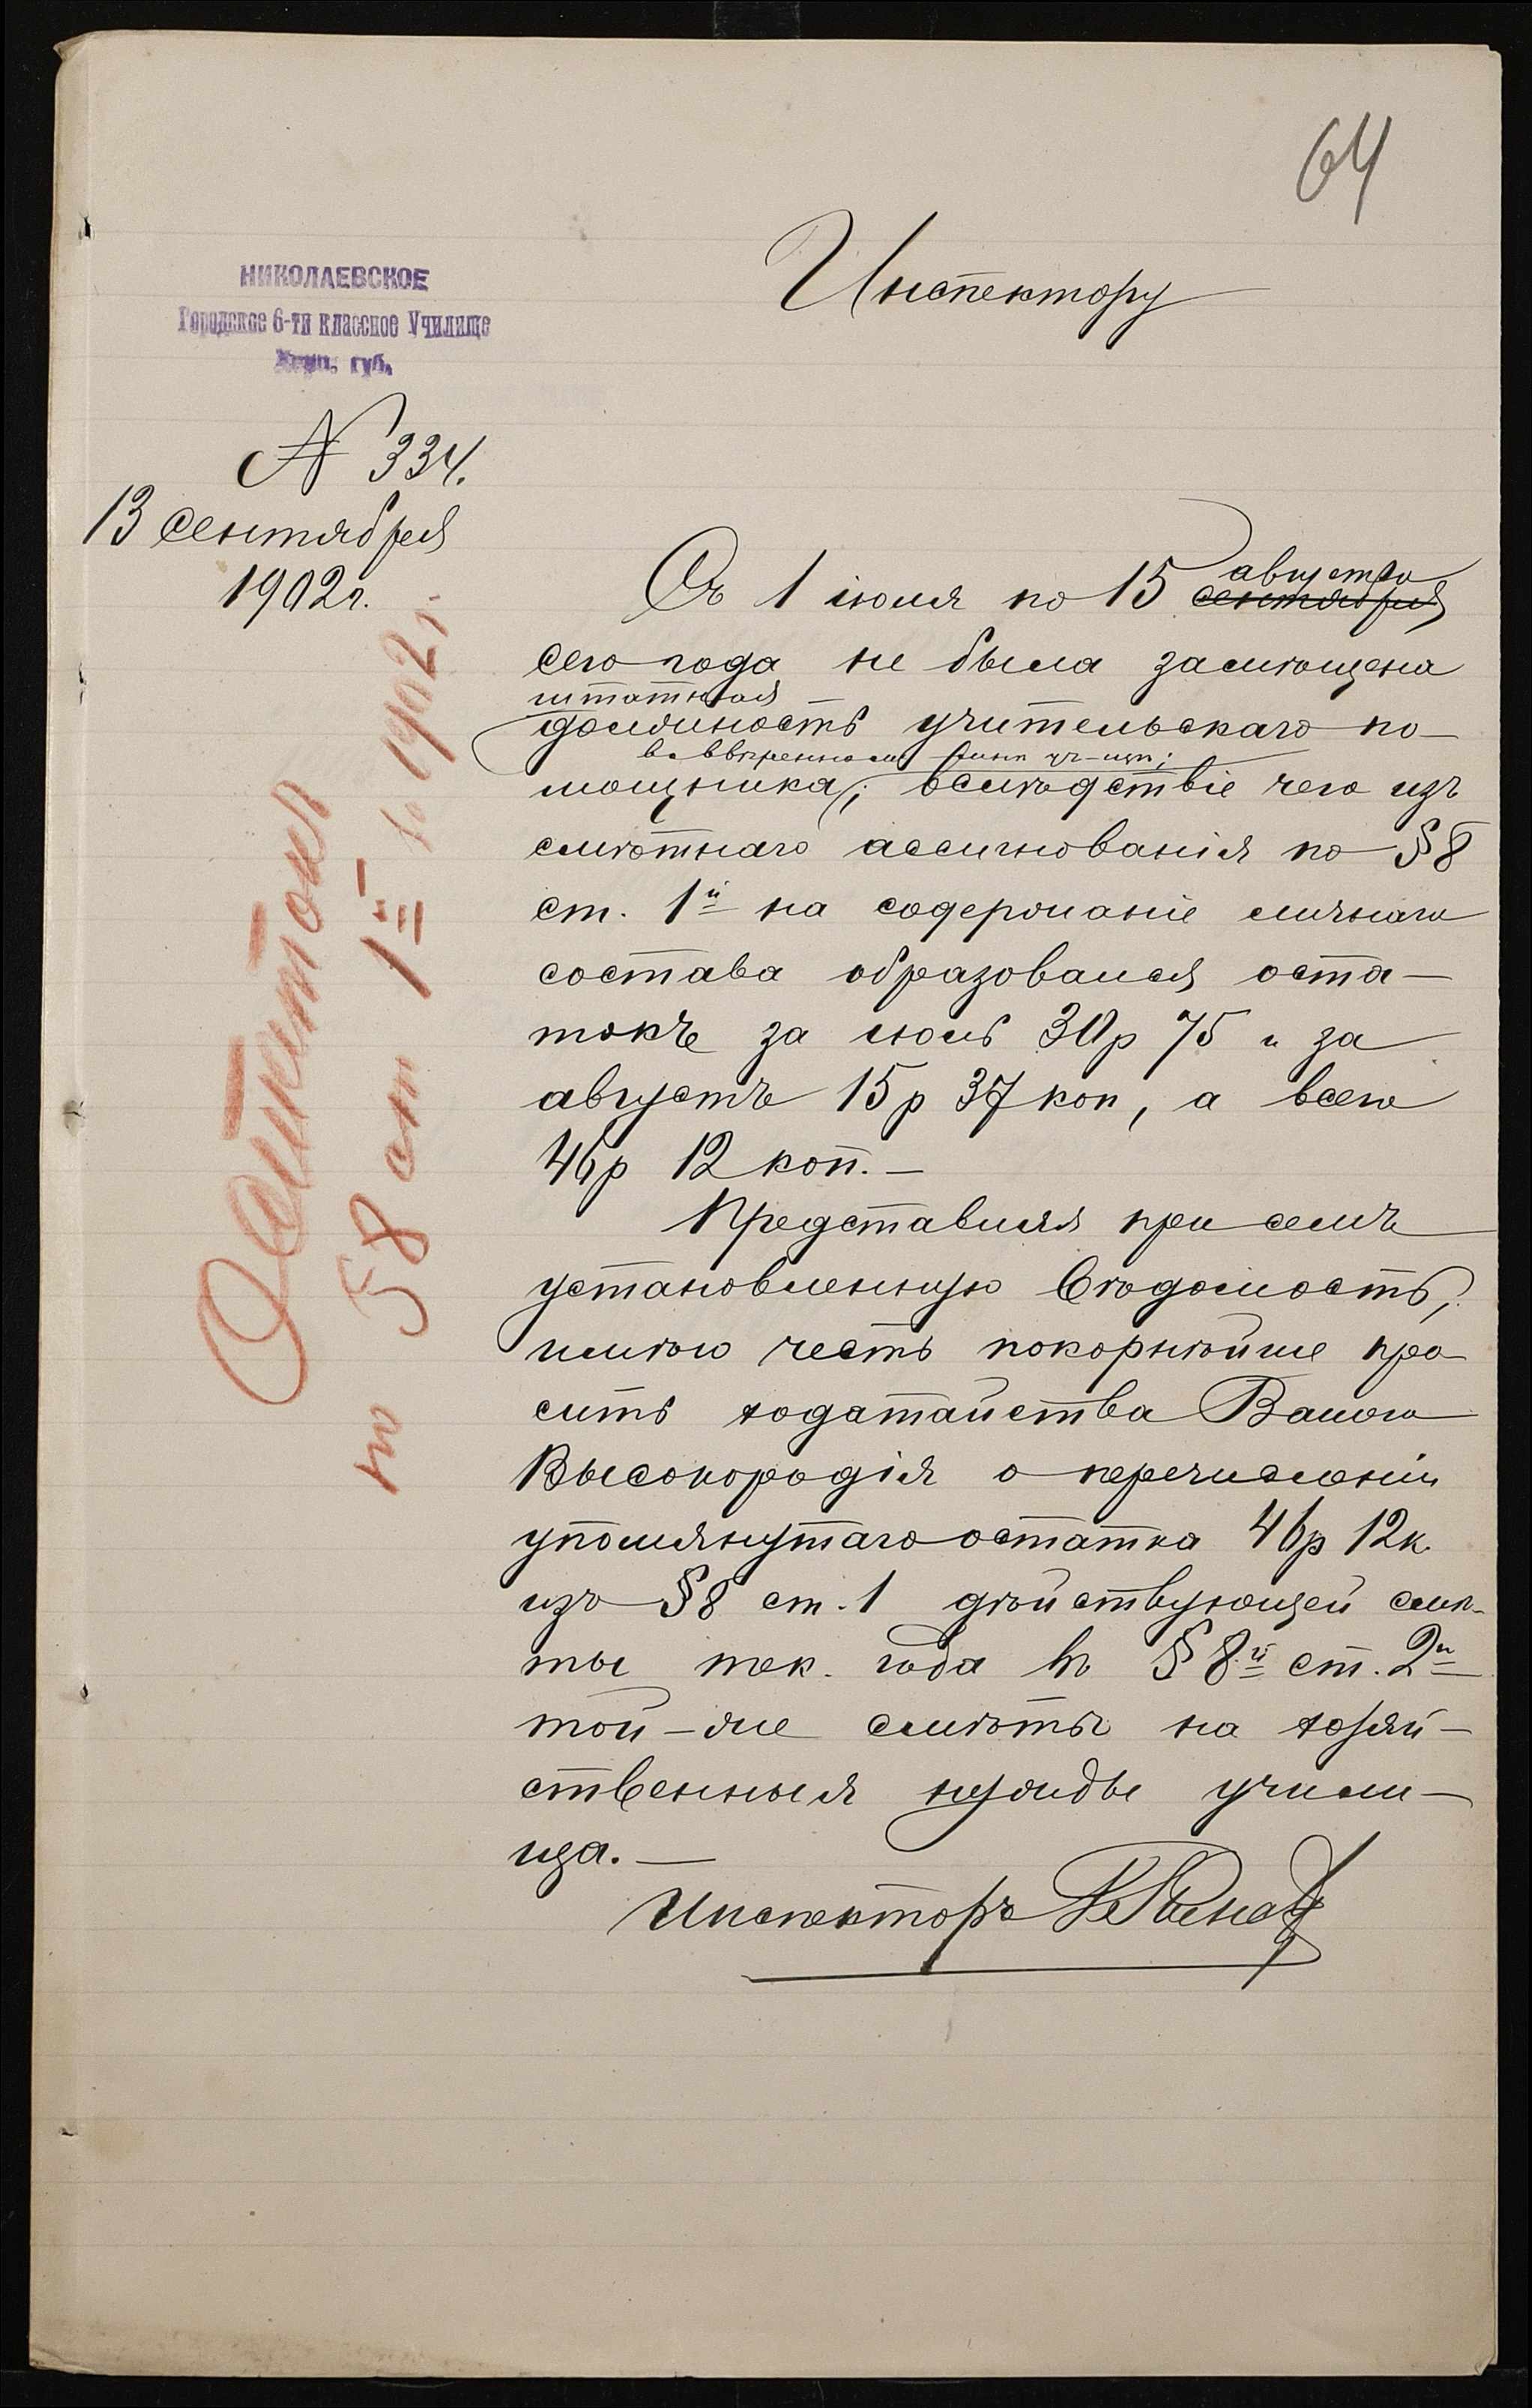 64
НИКОЛАЕВСКОЕ
Городское 6-ти классное Училище
Херс. губ.
№ 334.
13 сентября
1902 г.
Инспектору
Остатокъ
по §8 ст 1й за 1902 г.
августа
Съ 1 іюля по 15 сентября
сего года не была замѣщена
штатная
должность учительскаго по-
во ввѣренномъ мнѣ уч-щѣ;
мощника; вслѣдствіе чего изъ
смѣтнаго ассигнованія по §8
ст. 1й на содержаніе личнаго
состава образовался оста-
токъ за іюль 30р 75 и за
августъ 15р 37 коп, а всего
46р 12 коп. —
Представляя при семъ
установленную Вѣдомость,
имѣю честь покорнѣйше про
сить ходатайства Вашего
Высокородія о перечисленіи
упомянутаго остатка 46р 12к
изъ §8 ст. 1 дѣйствующей смѣ-
ты тек. года въ §8й ст. 2й
той-же смѣты на хозяй-
ственныя нужды учили-
ща. —
Инспекторъ